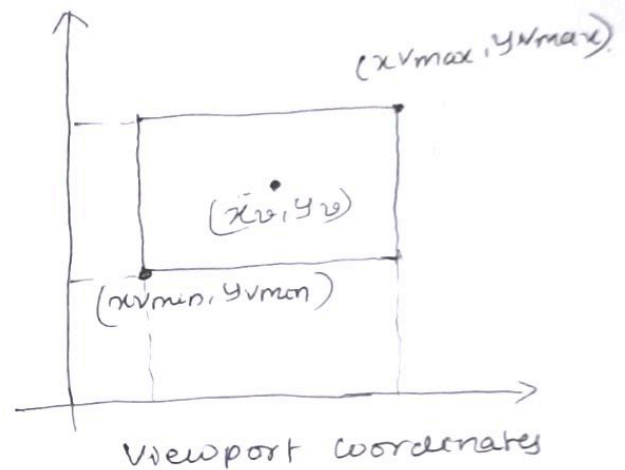 (xvmax, yvmax)
(xv, yv)
(xvmin, yvmin)
Viewport coordinates